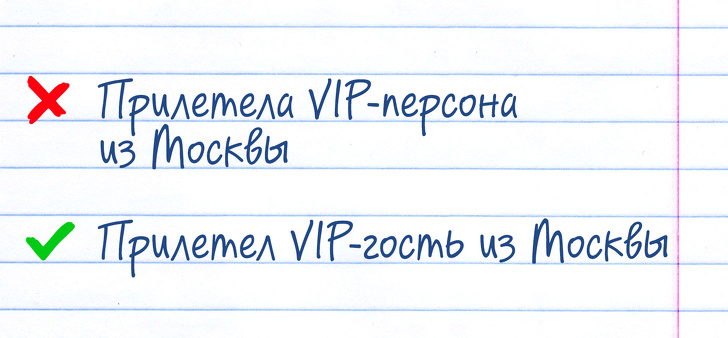 Прилетела VIP-персона
из Москвы
Прилетел VIP-гость из Москвы